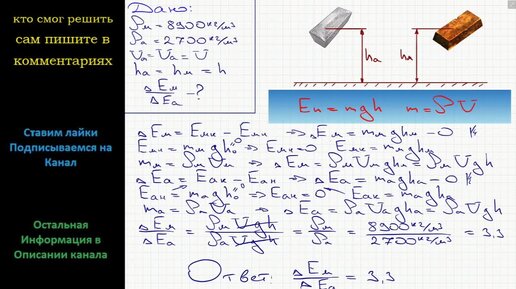 кто смог решить
сам пишите в
комментариях
Ставим лайки
Подписываемся на
Канал
Остальная
Информация в
Описании канала
Дано:
ρм = 8900 кг/м3
ρа = 2700 кг/м3
Vа = Vм = V
hа = hм = h
ΔEм/ΔEа - ?
hа
hм
Eп = mgh m = ρV
ΔEм = Eмк - Eмн => ΔEм = mмghм - 0
Eмн = mмgh0 => Eмн = 0 Eмк = mмghм
mм = ρмVм => ΔEм = ρмVмghм = ρмVgh
ΔEа = Eак - Eан => ΔEа = mаghа - 0
Eан = mаgh0 => Eан = 0 Eак = mаghа
mа = ρаVа => ΔEа = ρаVаghа = ρаVgh
ΔEм/ΔEа = ρмVgh/ρаVgh = ρм/ρа = 8900 кг/м3/2700 кг/м3 = 3,3
Ответ: ΔEм/ΔEа = 3,3